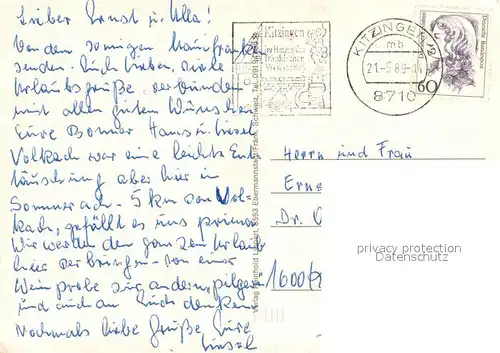 Lieber Ernst u. Ulla!
Von dem sonnigen Mainfranken
senden Euch lieben, viele
Urlaubsgrüße, verbunden
mit allen guten Wünschen
Eure Bonner Hans u. Liesel
Volkach war eine leichte Ent
täuschung aber hier in
Sommerach - 5 km von Vol-
kach, gefällt es uns prima.
Wir werden den ganzen Urlaub
hier verbringen - von einer
Weinprobe zur anderen pilgern
und auch an Euch denken.
Nochmals liebe Grüße, Eure
Liesel
Kitzingen
im Herzen des
Weinlandes
KITZINGEN
mb
21.-5.89.-14
8710
Deutsche Bundespost
60
Verlag Reinhold Lippert, 8553 Ebermannstadt/Fränk. Schweiz, Tel. 09194
Herrn und Frau
Erns
Dr. C
1000
privacy protection
Datenschutz